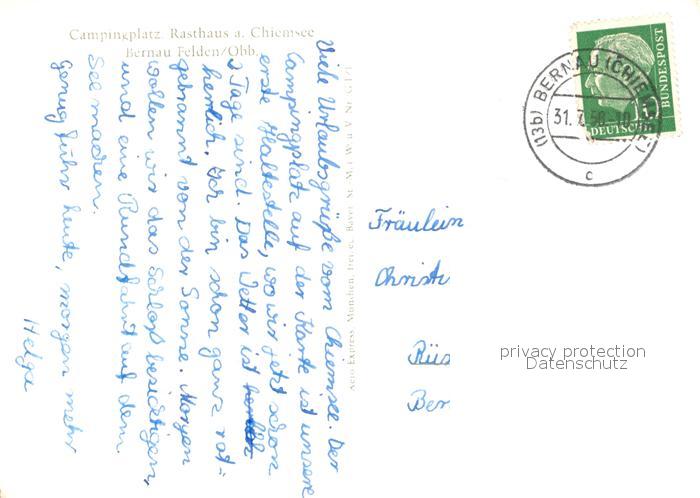 Campingplatz Rasthaus a. Chiemsee
Bernau Felden/Obb.
Viele Urlaubsgrüße vom Chiemsee. Der
Campingplatz auf der Karte ist unsere
erste Haltestelle, wo wir jetzt schon
2 Tage sind. Das Wetter ist
herrlich. Ich bin schon ganz rot-
gebrannt von der Sonne. Morgen
wollen wir das Schloß besichtigen,
und eine Rundfahrt auf dem
See machen.
Genug führ heute, morgen mehr
Helga
Aero Express München
(13b) BERNAU (CHIEM
31. 7. 58
c
DEUTSCHE
BUNDESPOST
10
Fräulein
Christi
Rüs
Ber
privacy protection
Datenschutz